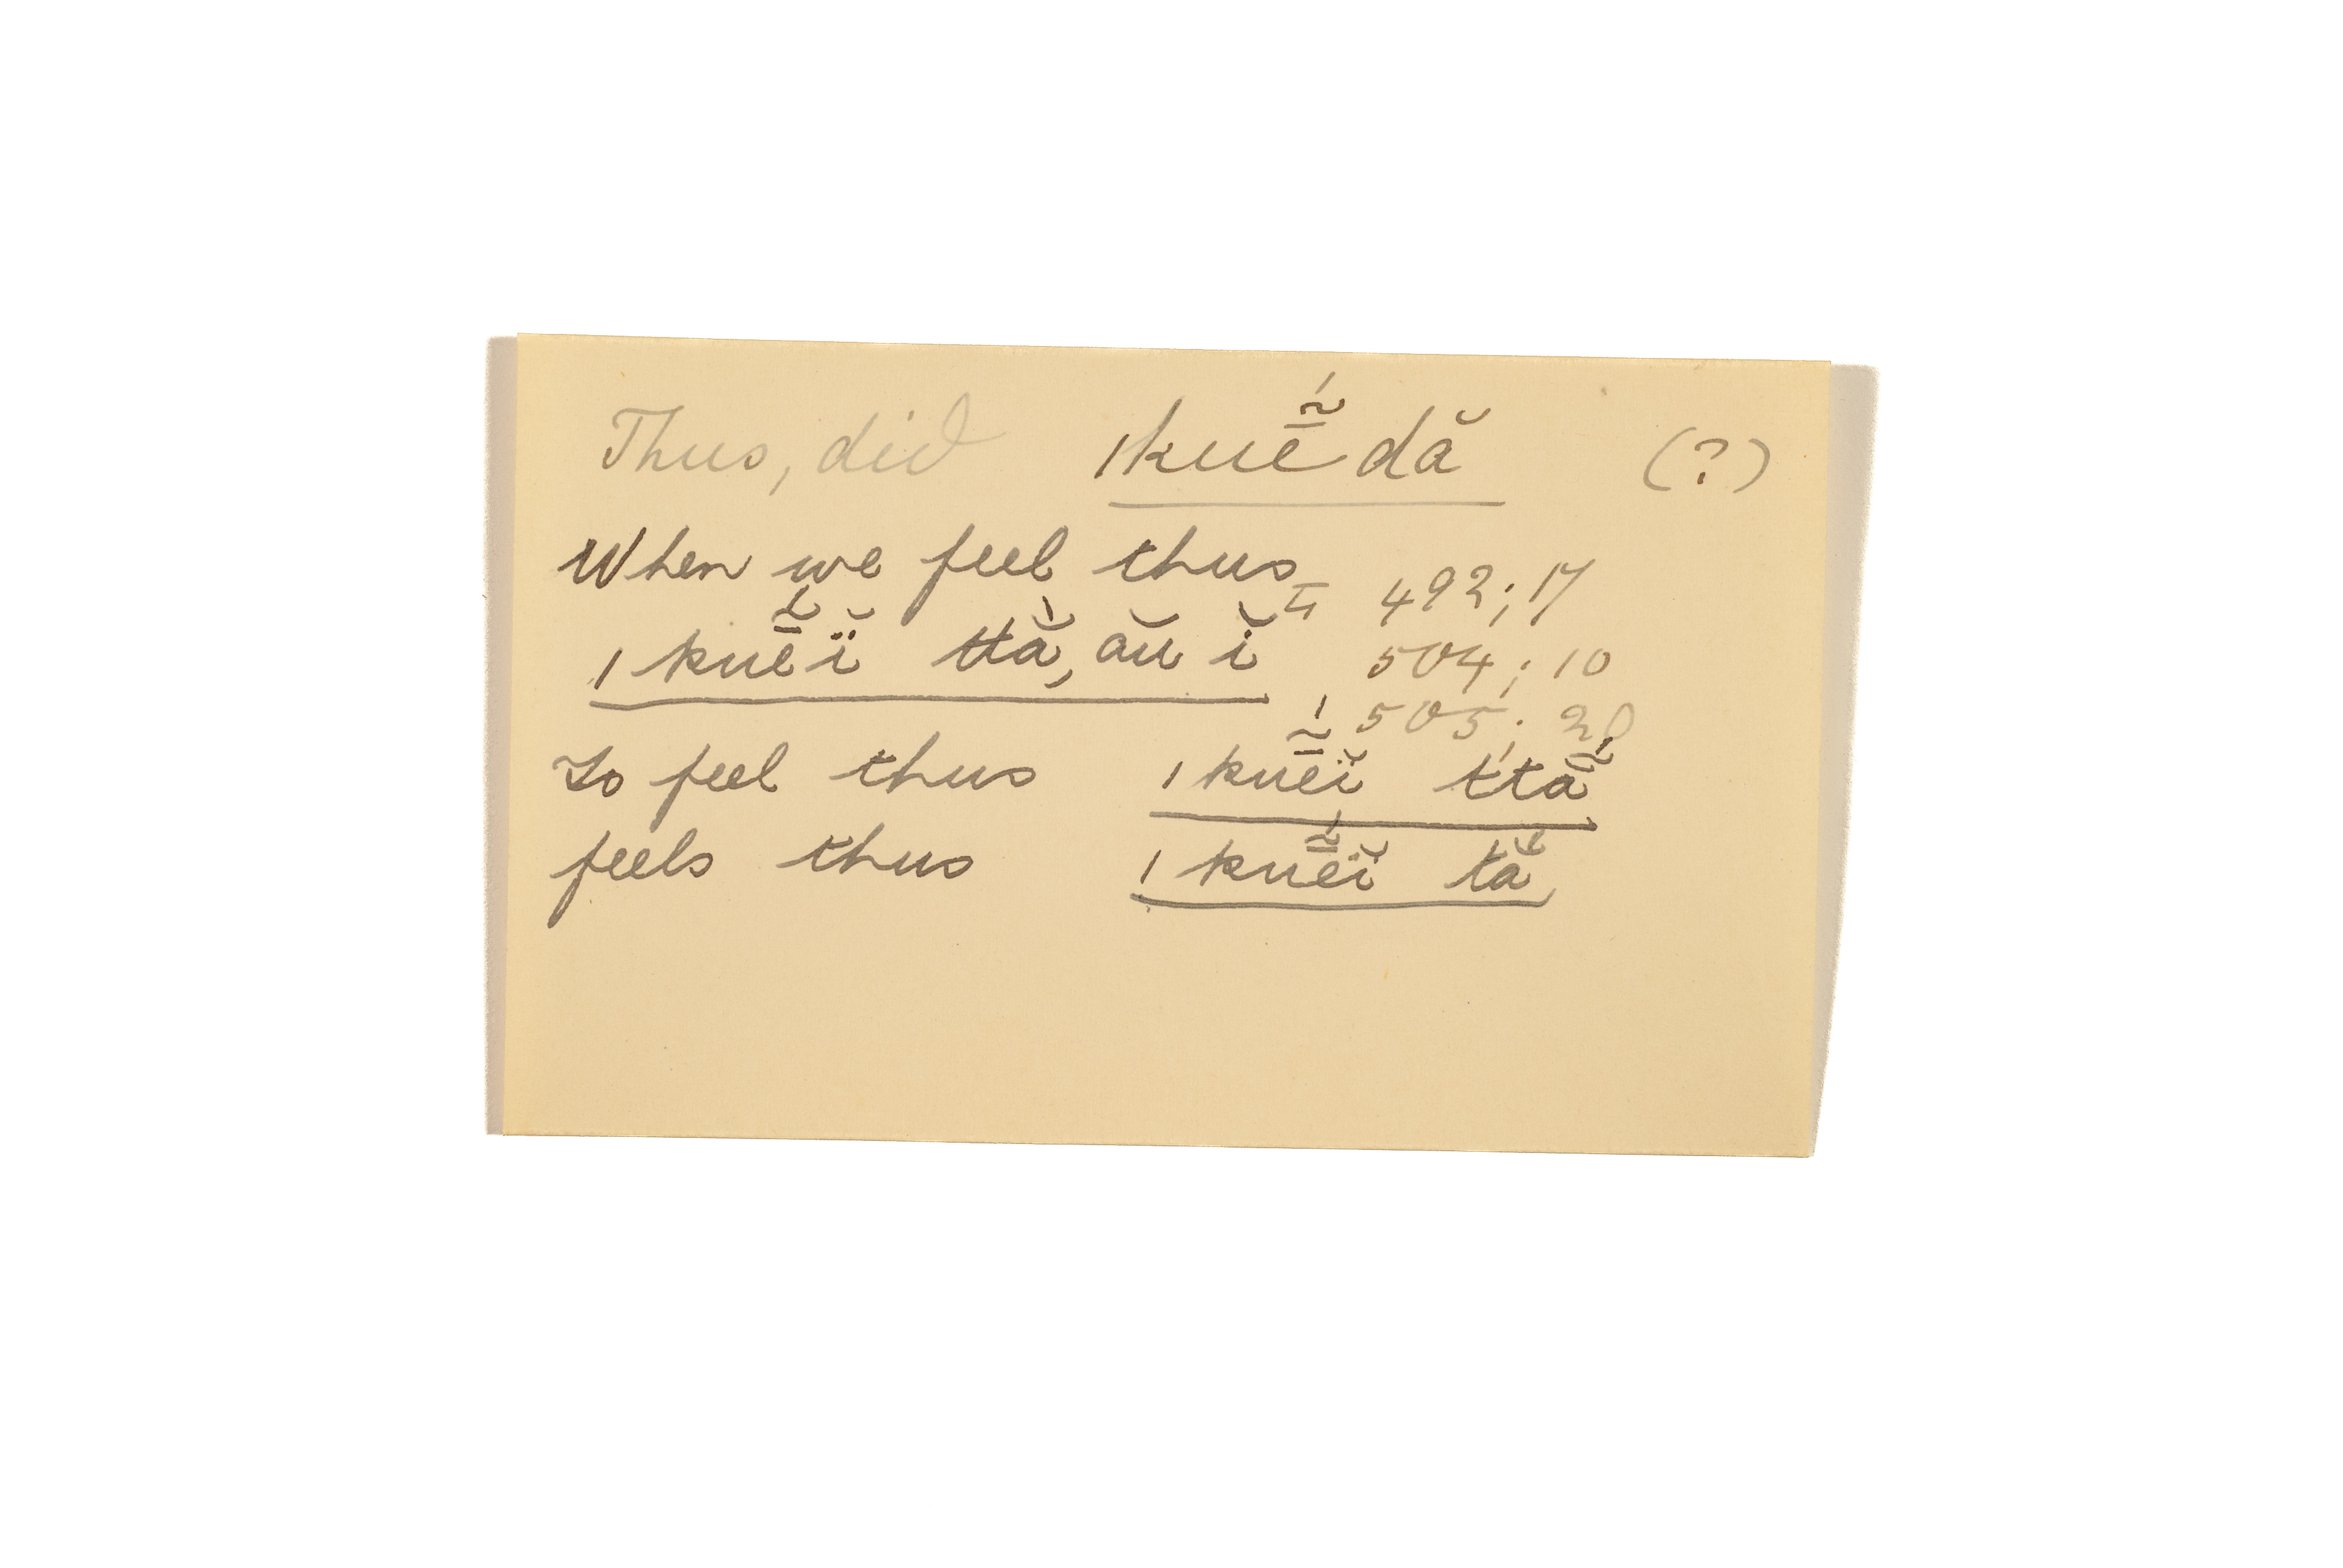 Thus, did ǀkuḗ̃ dă (?)
When we feel thus
II 492; 17
ǀkuḗ̃ĭ ttā̆́, ău ĭ 504; 10
505; 20
To feel thus ǀkuḗ̃ĭ ttā̃́
feels thus ǀkuḗ̃ĭ tă,